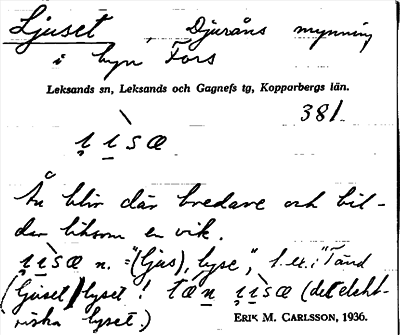 Ljuset, Djuråns mynning
i byn Fors
Leksands sn, Leksands och Gagnefs tg, Kopparbergs län.
381
Ån blir där bredare och bil-
dar liksom en vik.
n. = "(ljus), lyse", t. ex. i "Tänd
(ljuset) lyset! (det elekt-
riska lyset.)
ERIK M. CARLSSON, 1936.